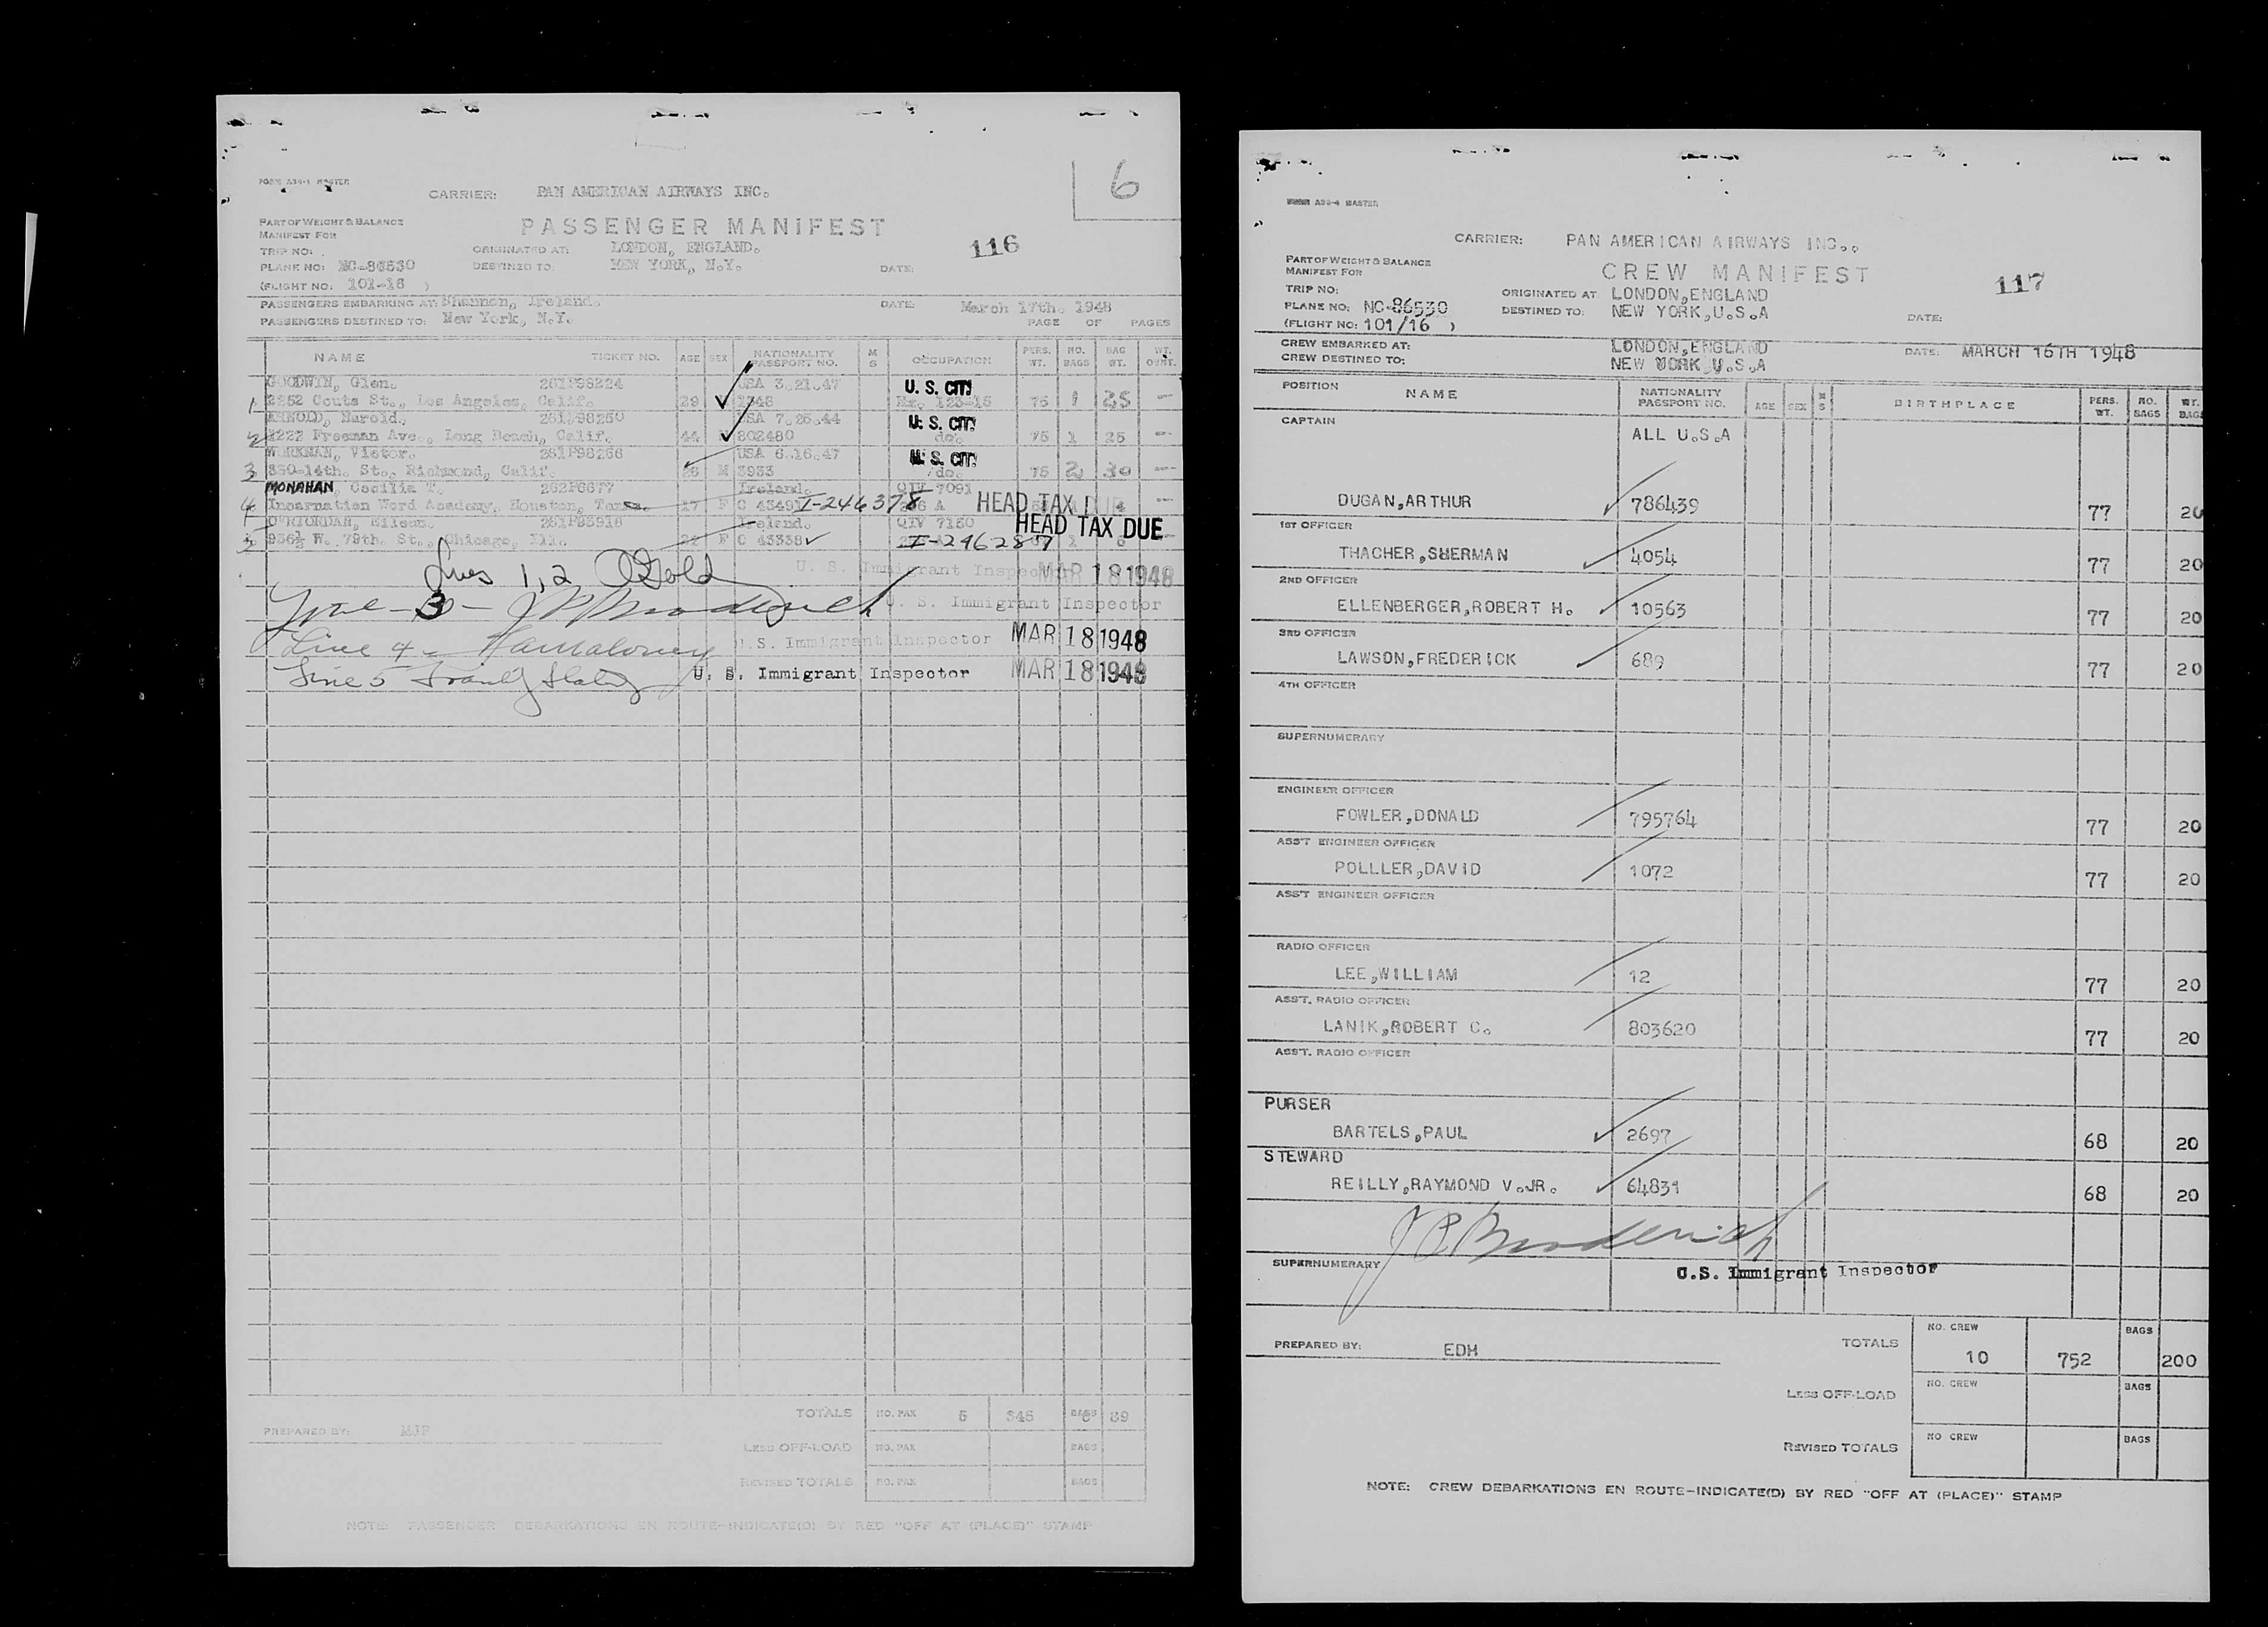 FORM A39-1 MASTER
6
CARRIER: PAN AMERICAN AIRWAYS INC.
PART OF WEIGHT & BALANCE
MANIFEST FOR
PASSENGER MANIFEST
116
TRIP NO:
ORIGINATED AT: LONDON, ENGLAND.
PLANE NO: NC-86530
DESTINED TO: NEW YORK, N.Y.
DATE:
(FLIGHT NO: 101-16 )
PASSENGERS EMBARKING AT: Shannon, Ireland.
DATE: March 17th. 1948
PASSENGERS DESTINED TO: New York, N.Y.
PAGE OF PAGES
NAME TICKET NO. AGE SEX NATIONALITY PASSPORT NO. M S OCCUPATION PERS. WT. NO. BAGS BAG WT. WT. OVHT.
GOODWIN, Glen. 261P98224 USA 3.21.47 U. S. CIT.
1 2252 Couts St., Los Angeles, Calif. 29 1348 Ex. 123-16 75 1 25 —
ARNOLD, Harold. 261P98250 USA 7.26.44 U. S. CIT.
2 2222 Freeman Ave., Long Beach, Calif. 44 M 802480 do. 75 1 25 —
WORKMAN, Victor. 261P98266 USA 6.16.47 U. S. CIT.
3 350-14th. St., Richmond, Calif. 26 M 3933 do. 75 2 30 —
MONAHAN, Cecilia T. 262P6677 Ireland. QIV 7091
4 Incarnation Word Academy, Houston, Texas. 17 F C 43491 I-246378 HEAD TAX DUE —
O'RIORDAN, Eileen. 261P93918 Ireland. QIV 7150 HEAD TAX DUE
5 936½ W. 79th. St., Chicago, Ill. 22 F C 43338 I-246287 1
Lines 1, 2 Gold U. S. Immigrant Inspector MAR 18 1948
Line - 3 - J P Broderick U. S. Immigrant Inspector
Line 4 - Maloney U. S. Immigrant Inspector MAR 18 1948
Line 5 U. S. Immigrant Inspector MAR 18 1948
TOTALS NO. PAX 5 346 BAGS 6 89
PREPARED BY: MJP
LESS OFF-LOAD NO. PAX BAGS
REVISED TOTALS NO. PAX BAGS
NOTE: PASSENGER DEBARKATIONS EN ROUTE-INDICATE(D) BY RED "OFF AT (PLACE)" STAMP
FORM A39-4 MASTER
CARRIER: PAN AMERICAN AIRWAYS INC..
PART OF WEIGHT & BALANCE
MANIFEST FOR
CREW MANIFEST
117
TRIP NO:
ORIGINATED AT LONDON,ENGLAND
PLANE NO: NC-86530
DESTINED TO: NEW YORK,U.S.A
DATE:
(FLIGHT NO: 101/16 )
CREW EMBARKED AT: LONDON,ENGLAND
DATE: MARCH 16TH 1948
CREW DESTINED TO: NEW YORK U.S.A
POSITION NAME NATIONALITY PASSPORT NO. AGE SEX M S BIRTHPLACE PERS. WT. NO. BAGS WT. BAGS
CAPTAIN
ALL U.S.A
DUGAN,ARTHUR 786439 77 20
1ST OFFICER
THACHER,SHERMAN 4054 77 20
2ND OFFICER
ELLENBERGER,ROBERT H. 10563 77 20
3RD OFFICER
LAWSON,FREDERICK 689 77 20
4TH OFFICER
SUPERNUMERARY
ENGINEER OFFICER
FOWLER,DONALD 795764 77 20
ASS'T ENGINEER OFFICER
POLLLER,DAVID 1072 77 20
ASS'T ENGINEER OFFICER
RADIO OFFICER
LEE,WILLIAM 12 77 20
ASS'T. RADIO OFFICER
LANIK,ROBERT C. 803620 77 20
ASS'T. RADIO OFFICER
PURSER
BARTELS,PAUL 2697 68 20
STEWARD
REILLY,RAYMOND V.JR. 64831 68 20
J P Broderick
SUPERNUMERARY
U.S. Immigrant Inspector
PREPARED BY: EDH
TOTALS NO. CREW 10 752 BAGS 200
LESS OFF-LOAD NO. CREW BAGS
REVISED TOTALS NO CREW BAGS
NOTE: CREW DEBARKATIONS EN ROUTE-INDICATE(D) BY RED "OFF AT (PLACE)" STAMP